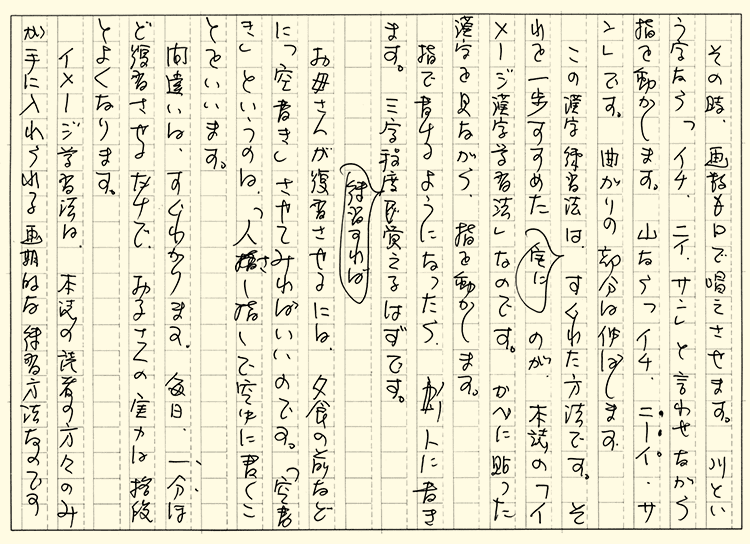 その時、画数も口で唱えさせます。川とい
う字なら「イチ、ニイ サン」と言わせながら
指を動かします。山なら「イチ、ニーイ、サ
ン」です。曲がりの部分は伸ばします
この漢字練習法は、すぐれた方法です。そ
れを一歩すすめた のが、本誌の「イ
実に
メージ漢字学習法」なのです。かべに貼った
漢字を見ながら、指を動かします。
指で書けるようになったら、ノートに書き
ます。三字程度で覚えるはずです。
練習すれば
お母さんが復習させるには、夕食の前など
に「空書き」させてみればいいのです。「空書
き」というのは、「人さし指」で空中に書くこ
とをいいます。
間違いは、すぐわかります。毎日、一分ほ
ど復習させるだけで、お子さんの実力は格段
とよくなります。
イメージ学習法は、本誌の読者の方々のみ
が手に入れられる画期的な練習方法なのです